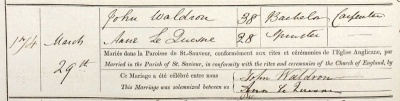 John Waldson 38 Bachelor Carpenter
174 March Anne Le Quesne 28 Spinster
29th
Mariés dans la Paroisse de St.-Sauveur, conformément aux rites et cérémonies de l'Eglise Anglicane, par
Married in the Parish of St. Saviour, in conformity with the rites and ceremonies of the Church of England, by
Ce Mariage a été célébré entre nous John Waldson
This Marriage was solemnized between us Anne Le Quesne